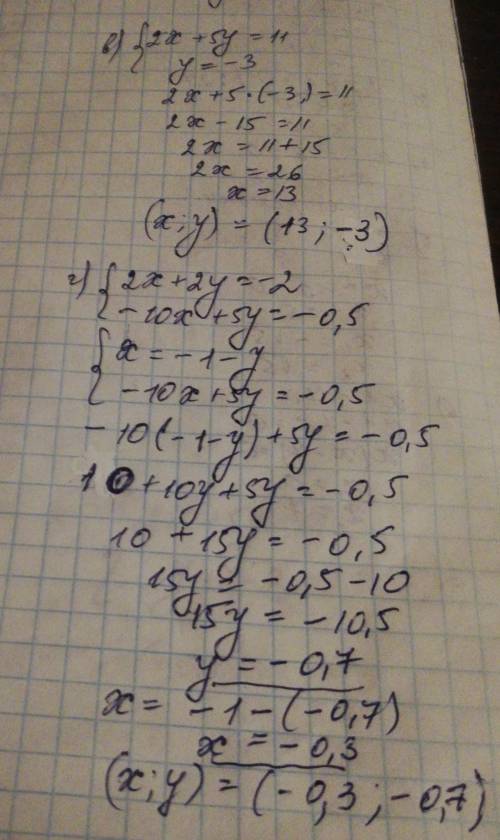 в) { 2x + 5y = 11
y = -3
2x + 5 · (-3) = 11
2x - 15 = 11
2x = 11 + 15
2x = 26
x = 13
(x; y) = (13; -3)
г) { 2x + 2y = -2
-10x + 5y = -0,5
{ x = -1 - y
-10x + 5y = -0,5
-10(-1-y) + 5y = -0,5
10 + 10y + 5y = -0,5
10 + 15y = -0,5
15y = -0,5 - 10
15y = -10,5
y = -0,7
x = -1 - (-0,7)
x = -0,3
(x; y) = (-0,3; -0,7)